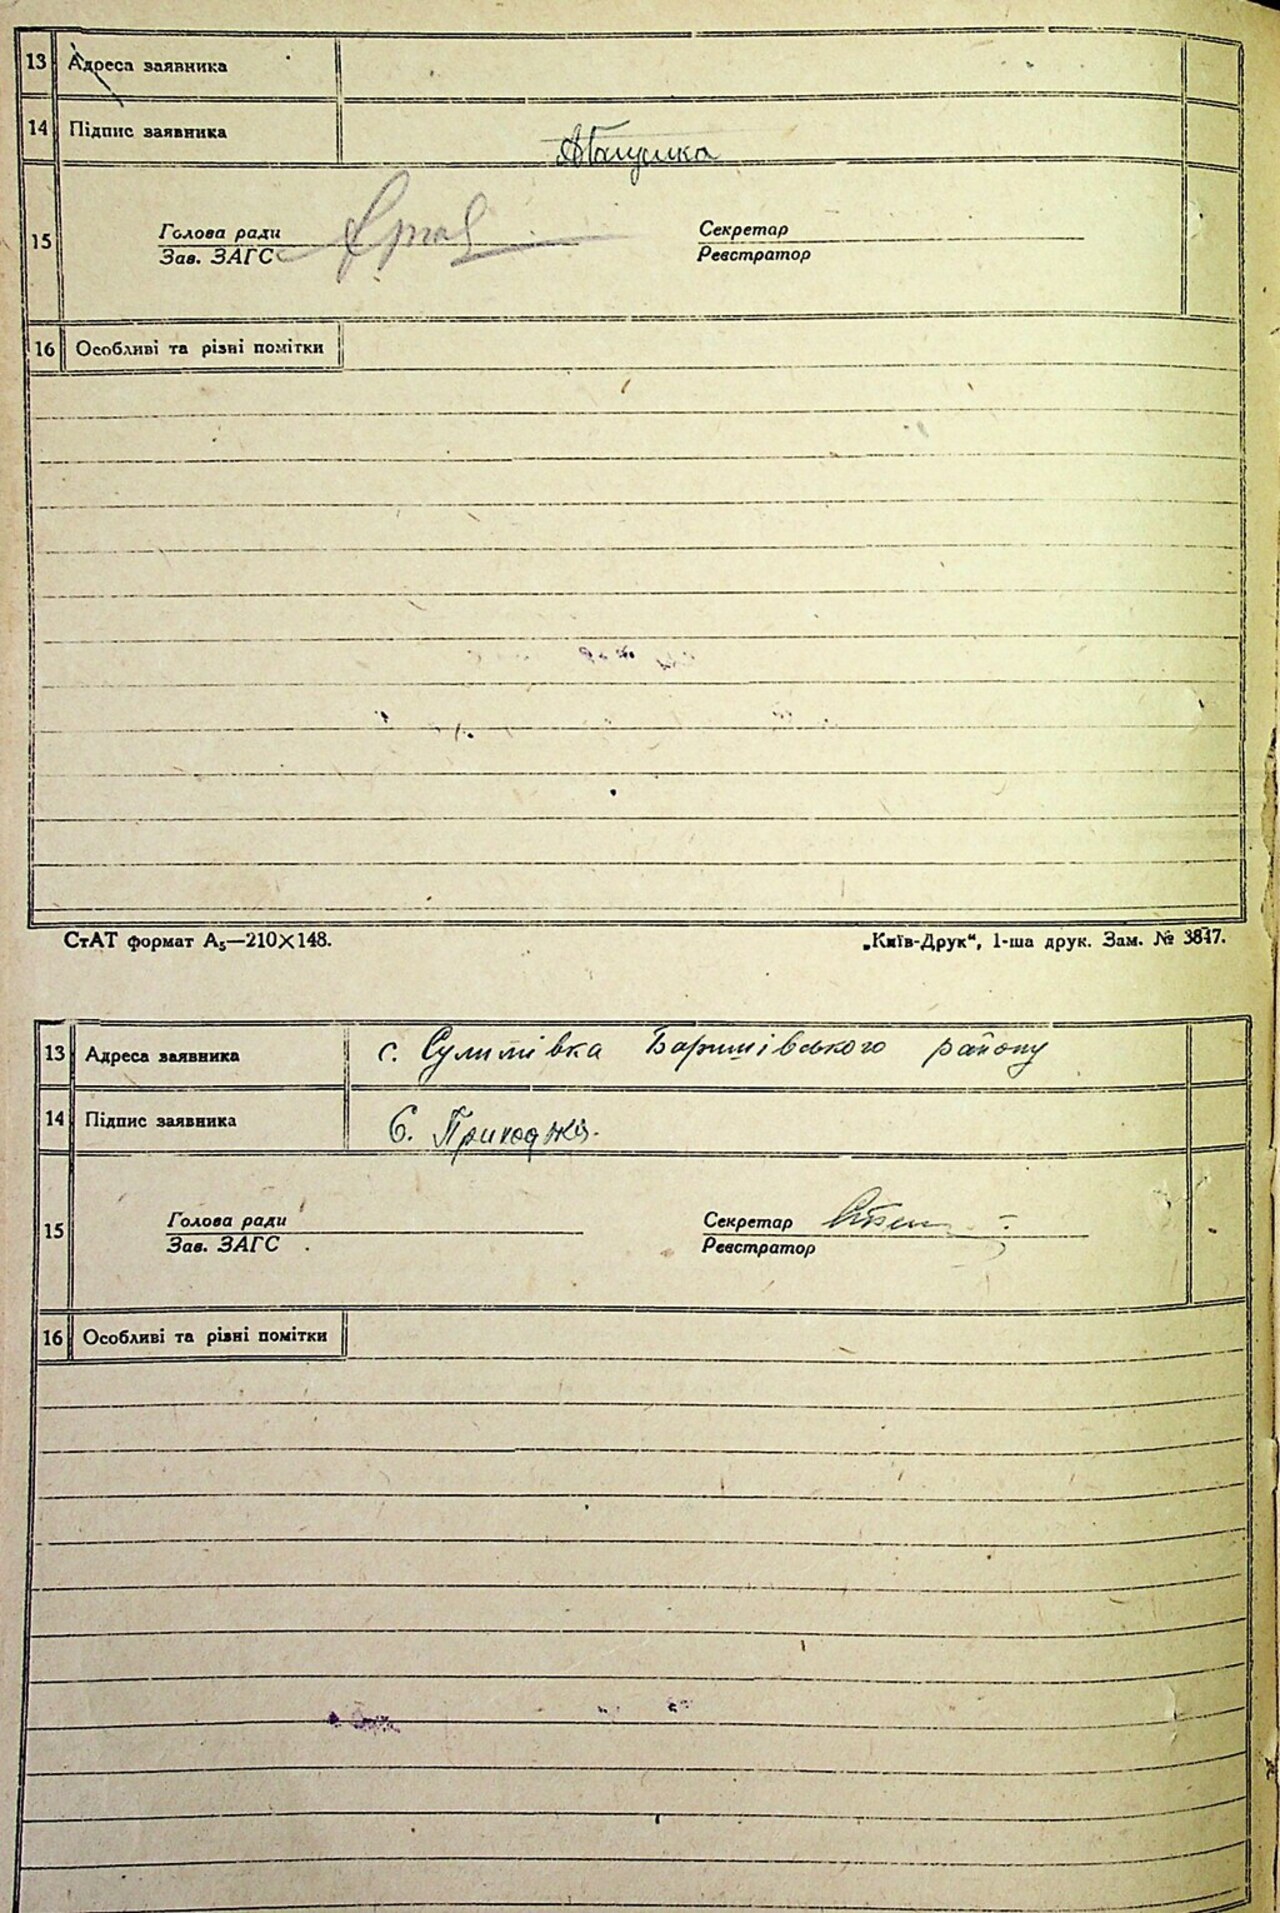 13 Адреса заявника
14 Підпис заявника
15 Голова ради Секретар
Зав. ЗАГС Реєстратор
16 Особливі та різні помітки
СтАТ формат А₅—210×148. „Київ-Друк“, 1-ша друк. Зам. № 3847.
13 Адреса заявника с. Сулимівка Баришівського району
14 Підпис заявника Є. Приходжа.
15 Голова ради Секретар
Зав. ЗАГС Реєстратор
16 Особливі та різні помітки